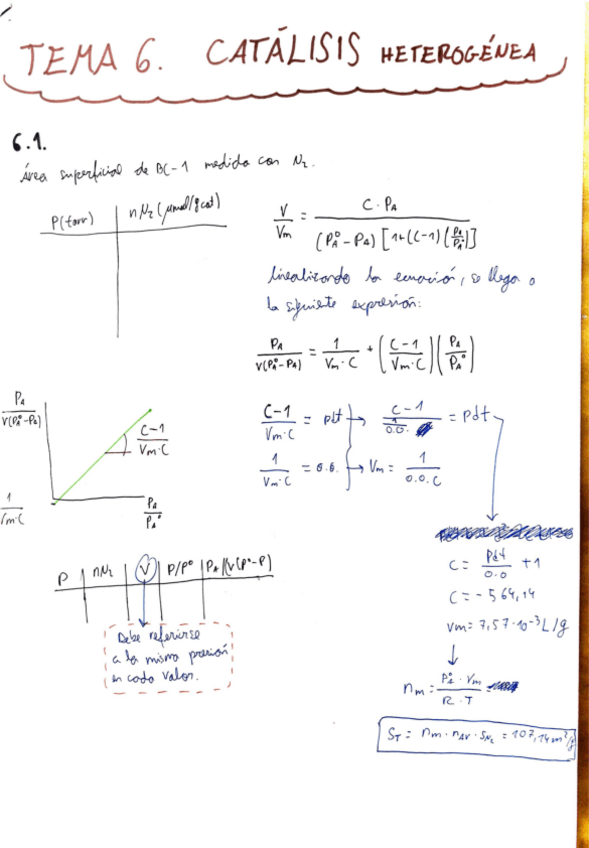 TEMA 6. CATÁLISIS HETEROGÉNEA
6.1.
Área superficial de BC-1 medida con N2.
P(torr) | nN2 (μmol/gcat)
V/Vm = C · PA / (PA° - PA) [1+(C-1) (PA/PA°)]
linealizando la ecuación, se llega a
la siguiente expresión:
PA / V(PA°-PA) = 1 / Vm·C + (C-1 / Vm·C) (PA / PA°)
PA / V(PA°-PA)
C-1 / Vm·C
1 / Vm·C
PA / PA°
C-1 / Vm·C = pdt → C-1 / (1 / O.O.) = pdt
1 / Vm·C = O.O. → Vm = 1 / O.O. C
P | nN2 | V | P/P° | PA/(V(P°-P)
Debe referirse
a la misma presión
en cada valor.
C = pdt / O.O + 1
C = -564,14
Vm = 7,57·10⁻³ L/g
nm = PA° · Vm / R · T =
ST = nm · nAV · SN2 = 107,14 m²/g